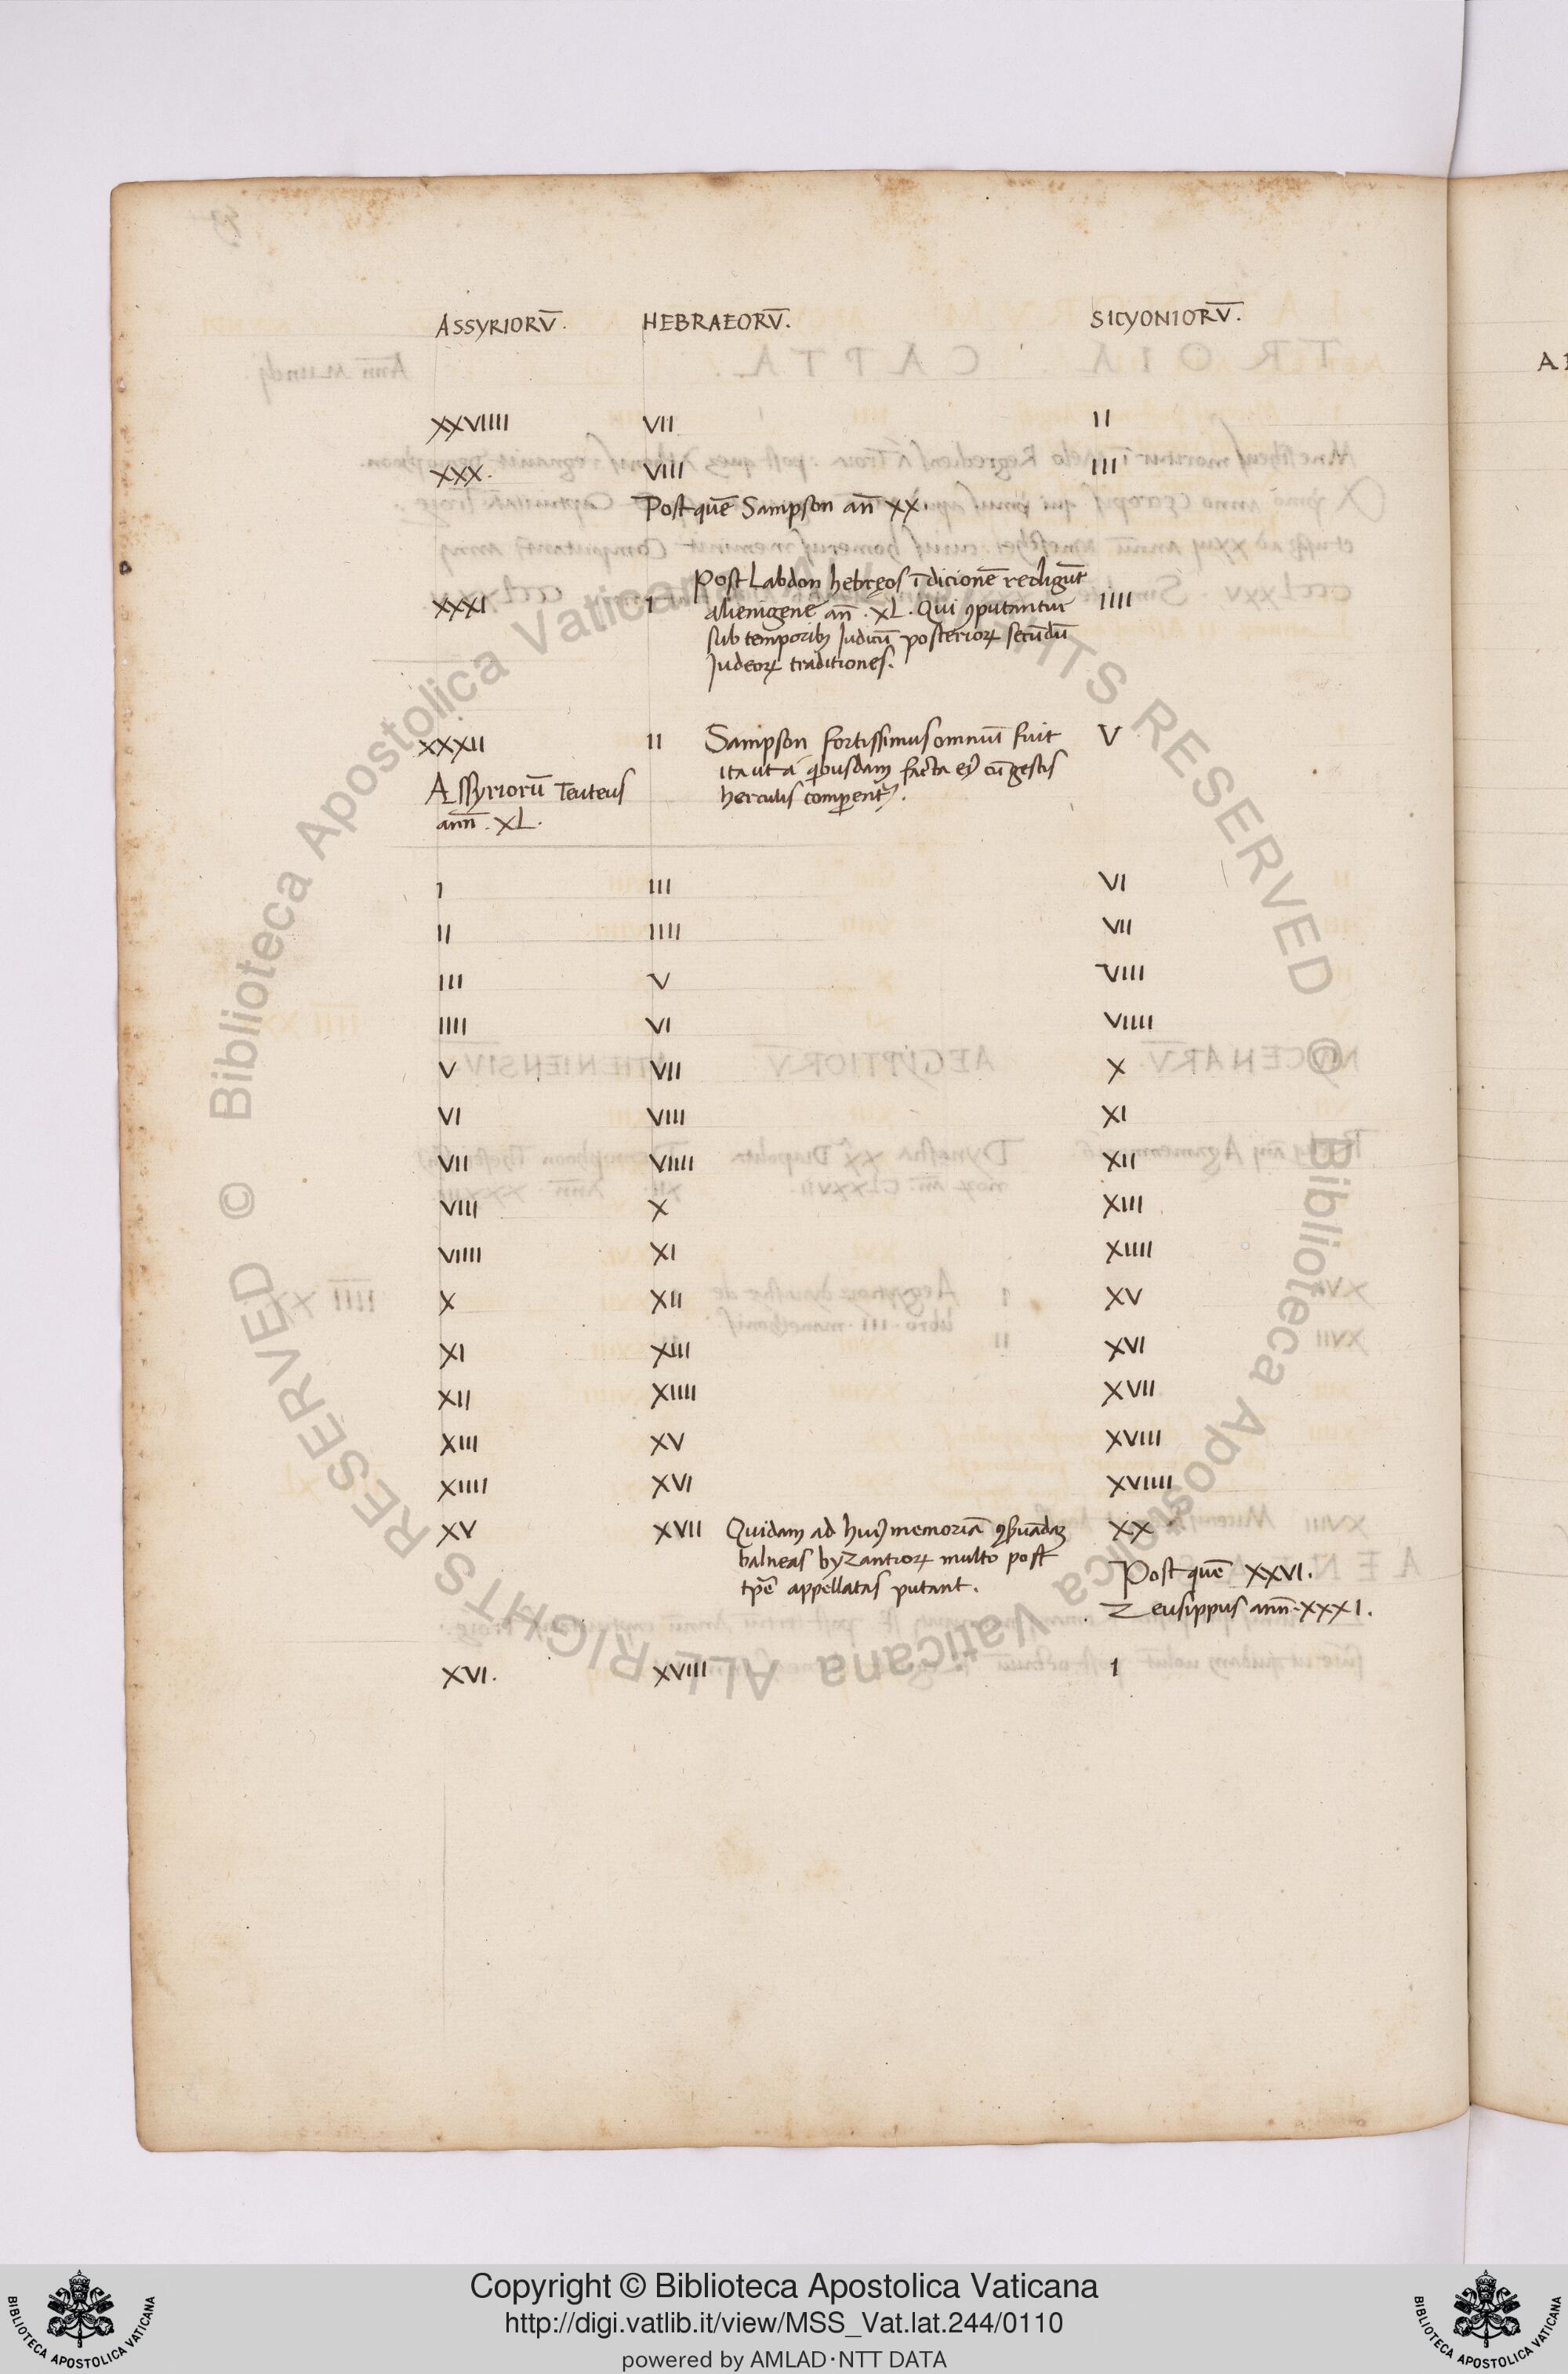 ASSYRIORV̅. HEBRAEORV̅. SICYONIORV̅.
XXVIIII VII II
XXX. VIII III
Post quē Sampson an̄ XX.
Post Labdon hebręos ī dicionē redigūt
XXXI I alienigene an̄. XL. Qui ꝯputantur IIII
sub temporibꝫ Judicū posterioꝝ secūdū
Judeoꝝ traditiones.
XXXII II Sampson fortissimus omniū fuit V
ita ut a qibusdam facta eiꝰ cū gestis
Assyriorū Teuteus
herculis comparentꝰ.
ann̄. XL.
I III VI
II IIII VII
III V VIII
IIII VI VIIII
V VII X
VI VIII XI
VII VIIII XII
VIII X XIII
VIIII XI XIIII
X XII XV
XI XIII XVI
XII XIIII XVII
XIII XV XVIII
XIIII XVI XVIIII
XV XVII Quidam ad huiꝰ memoriā ꝯseruādaꝫ XX
balneas byzantioꝝ multo post
Post quē XXVI.
tp̄e appellatas putant.
Zeusippus ann̄. XXXI.
XVI. XVIII I
© Biblioteca Apostolica Vaticana ALL RIGHTS RESERVED
© Biblioteca Apostolica Vaticana ALL RIGHTS RESERVED
Copyright © Biblioteca Apostolica Vaticana
http://digi.vatlib.it/view/MSS_Vat.lat.244/0110
powered by AMLAD·NTT DATA
BIBLIOTECA APOSTOLICA VATICANA
BIBLIOTECA APOSTOLICA VATICANA